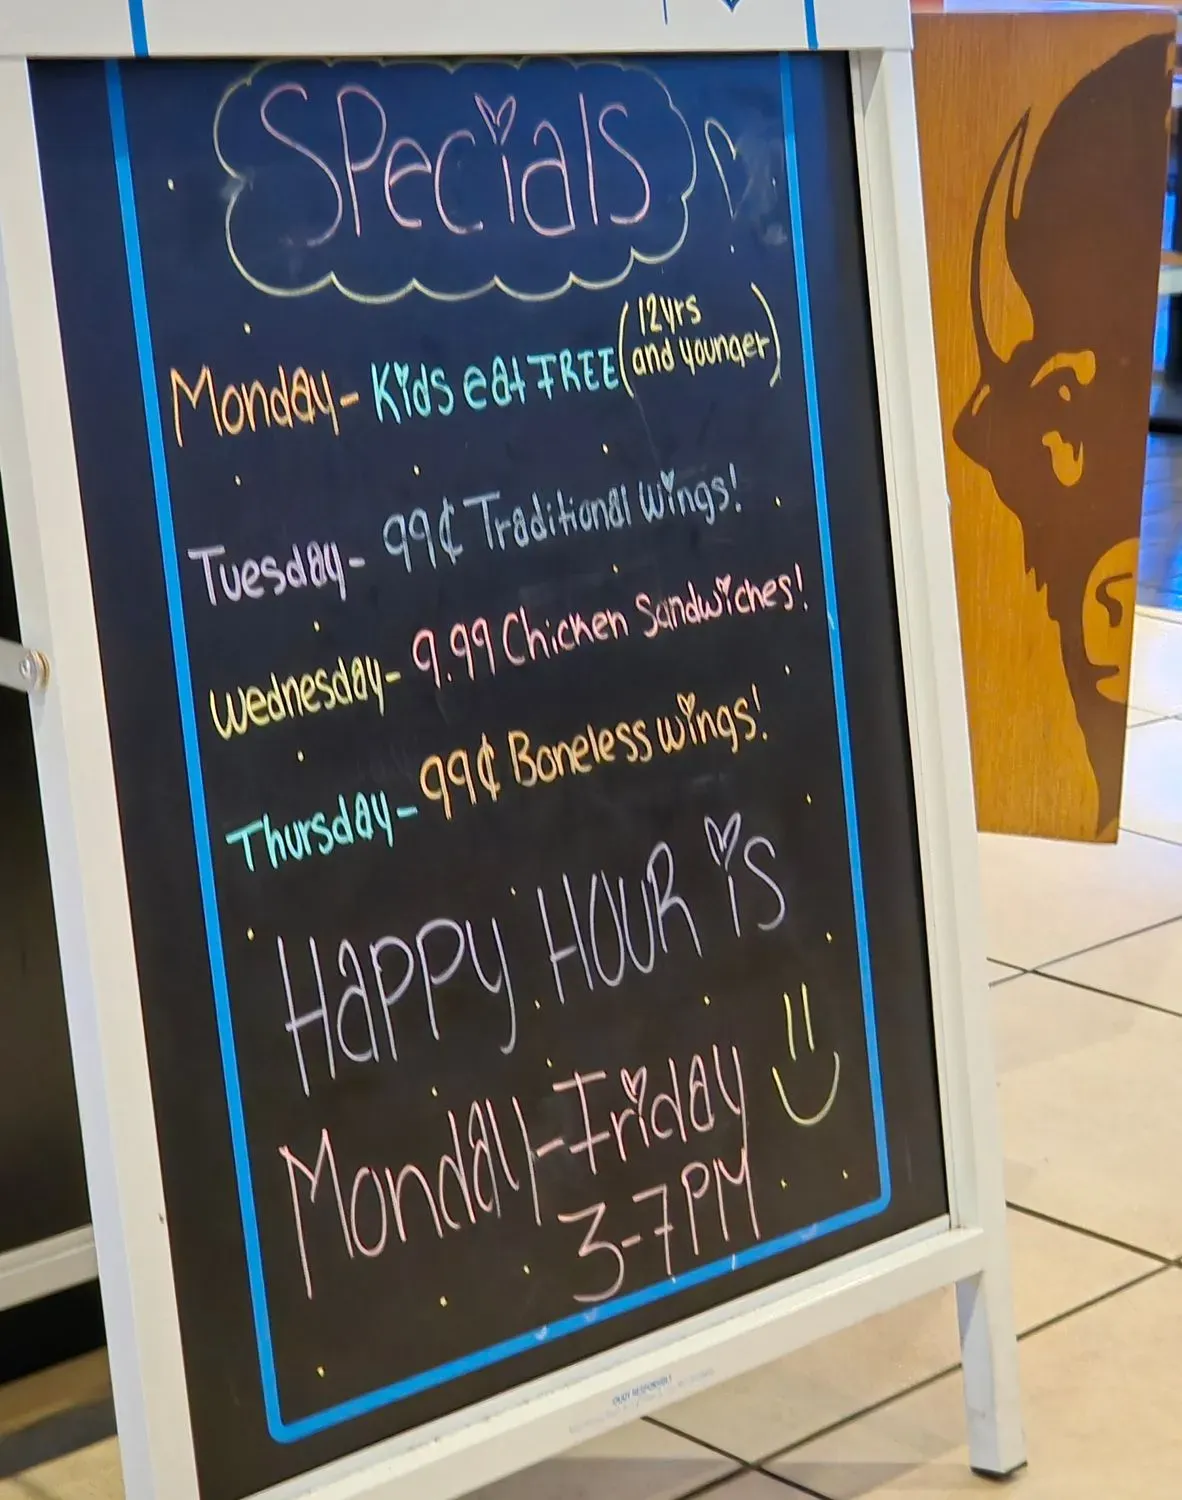 Specials
Monday- Kids eat FREE (12yrs and younger)
Tuesday- 99¢ Traditional Wings!
Wednesday- 9.99 Chicken Sandwiches!
Thursday- 99¢ Boneless wings!
HAPPY HOUR is
Monday-Friday
3-7PM